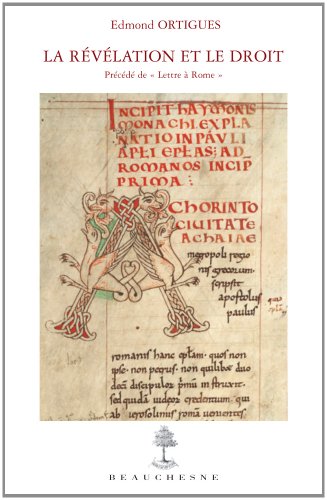 Edmond ORTIGUES
LA RÉVÉLATION ET LE DROIT
Précédé de « Lettre à Rome »
INCIPIT HAYMONIS
MONACHI EXPLA
NATIO IN PAULI
APLI EPLAS; AD
ROMANOS INCIP
PRIMA:
A CHORINTO
CIVITATE
ACHAIAE
megropoli regio
nis grecorum
scripsit
apostolus
paulus
romanis hanc eplam. quos non
ipse. non petrus. non quilibet duo
decim discipulor primu instruxit.
sed quida iudeor credentium. qui
ab ierosolimis romam venientes
BEAUCHESNE